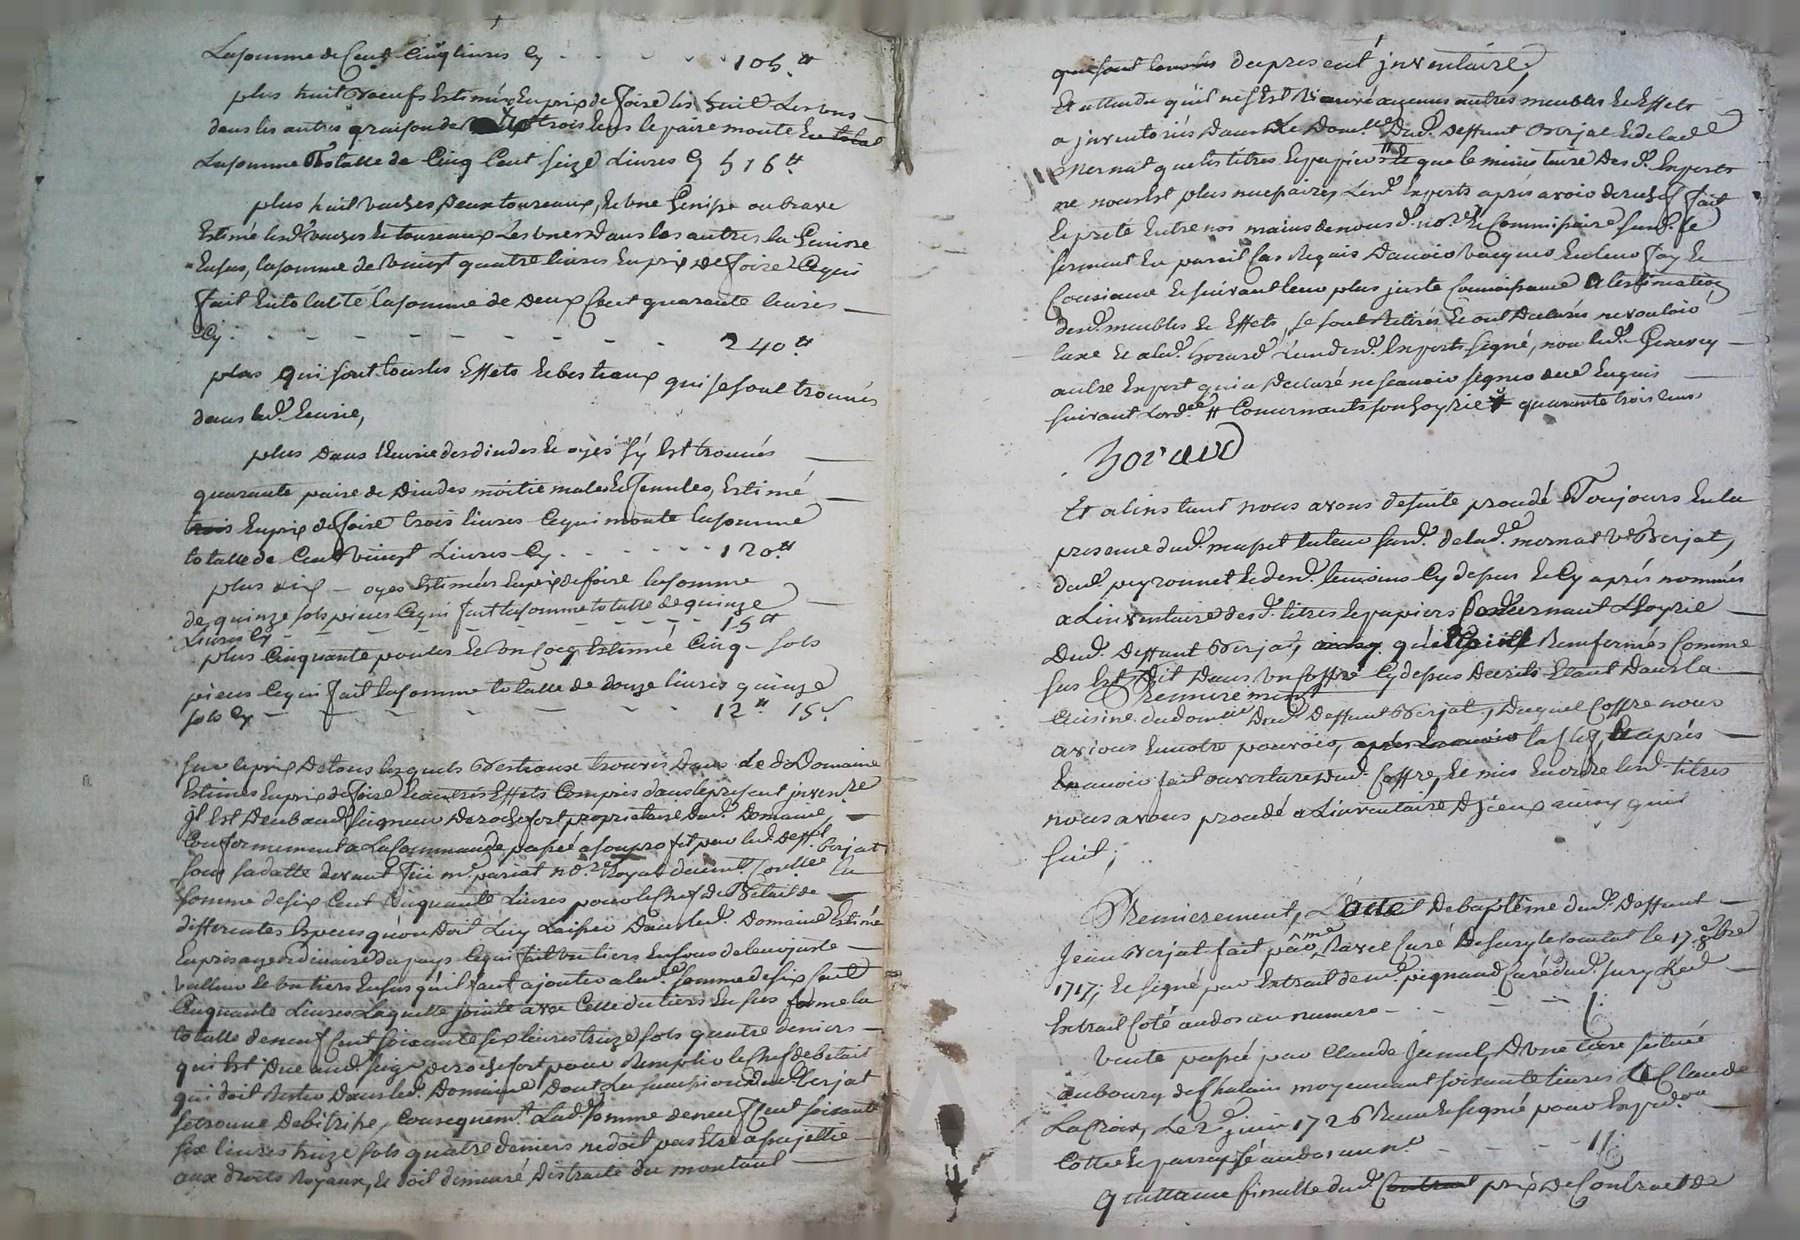 La somme de Cent Cinq livres Cy - - - - - 105.tt
plus huit Boeufs Estimés En prix de foire les huit Les uns
dans les autres a raison de trois livres le paire monte En total
La somme Totalle de Cinq Cent seize Livres Cy 516.tt
plus huit vaches deux toureaux, Et une Genisse ou brave
Estimé lesd. vaches Et toureaux Les unes dans les autres la Genisse
En sus, la somme de vingt quatre livres En prix de foire Ce qui
fait En totalité la somme de Deux Cent quarante livres
Cy - - - - - - - - - - 240.tt
plus qui sont tous les Effets Et bestiaux qui se sont trouvés
dans lad. Ecurie,
plus Dans l'Ecurie des dindes Et oyes s'y Est trouvés
quarante paire de Dindes moitie males Et femelles, Estimé
trois En prix de foire trois livres Ce qui monte la somme
totalle de Cent vingt Livres Cy - - - - - - 120.tt
plus dix - oyes Estimées En prix de foire la somme
de quinze sols pieces Ce qui fait la somme totalle de quinze
Livres Cy - - - - - - - - - 15.tt
plus Cinquante poules Et un Cocq Estimé Cinq sols
pieces Ce qui fait la somme totalle de douze livres quinze
sols Cy - - - - - - - 12.tt 15.s
Sur le prix De tous lesquels Bestiaux trouvés Dans Le d. Domaine
Estimés En prix de foire Et autres Effets Compris dans le present inventre
il Est Deub aud. seigneur De rochefort proprietaire dud. Domaine,
Conformement a La Commande passée a son profit par led. Defft. Berjat
sous sa datte devant feu me. pariat nore. Royal La
somme de six Cent Cinquante Livres pour le Chef de Betail de
differentes Especes qu'on Doit Luy Laisser Dans led. Domaine Estimé
En prisage ordinaire du pays Ce qui fait un tiers En sous de leur juste
valleur Et un tiers En sus qu'il faut ajouter a lad. somme de six Cent
Cinquante Livres Laquelle jointe avec Celle du tiers En sus forme la
totalle de neuf Cent soixante six livres treize sols quatre deniers
qui Est Due aud. seigr. De rochefort pour Remplir le Chef de betail
qui doit Rester Dans led. Domaine Dont La succession dud. Berjat
se trouve Debitrice, Consequemt. Lad. somme de neuf Cent soixante
six livres treize sols quatre deniers ne doit pas Etre assujettie
aux droits Royaux, Et doit demeuré Distraite du montant
qui sont du present inventaire,
Et attendu qu'il ne s'Est trouvé aucuns autres meubles Et Effets
a inventoriés Dans Le Domlle Dud. Deffunt Berjat Et de lad.
mernat que les titres Et papiers tt Et que le ministaire Desd. Experts
ne nous Est plus necessaires, Lesd. Experts après avoir derechef fait
Et preté Entre nos mains de nous d. nore. Et Commissaire susd. le
serment En pareil Cas Requis D'avoir vacqués En leur foy Et
Consiance Et suivant leur plus juste Connoissance A lestimation
desd. meubles Et Effets, se sont Retirés Et ont Declarés ne vouloir
taxe Et a led. Hovard L'un desd. Experts signé, non led.
autre Expert qui a Declaré ne scavoir signer de ce Enquis
suivant Lord.ce tt Concernants son hoyrie quarante trois
Hovard
Et a linstant nous avons de suite procedé Toujours En la
presence dud. tuteur susd. de lad. mernat ve Berjat,
dud. peyronnet Et desd. temoins Cy dessus Et Cy après nommés
a Linventaire desd. titres Et papiers Concernant Lhoyrie
Dud. Deffunt Berjat, Renfermés Comme
sus Est Dit Dans un Coffre Cy dessus Decrits Etant Dans la
Premierement
Cuisine du domlle Dud. Deffunt Berjat, Duquel Coffre nous
avions En notre pouvoir, la Clef, Et après
En avoir fait ouverture dud. Coffre, Et mis En ordre lesd. titres
nous avons procedé a L'inventaire D'iceux ainsy quil
suit;
Premierement, L'acte De baptême dud. Deffunt
Jean Berjat fait par me. Ravel Curé De sury le comtal le 17e. 8bre
1717; Et signé par Extrait de me. pignaud Curé dud. sury Led.
Extrait Coté au dos au numero - - - - - 1.
vente passé par Claude Jamel D'une terre située
au bourg de Chalain moyennant soixante livres A Claude
La Croix, Le 2e. juin 1726 signé pour Expedon
Cottée Et paraphé au dos au no. - - - - - 11.
Quittance finalle dud. Contrat prix de Contract de